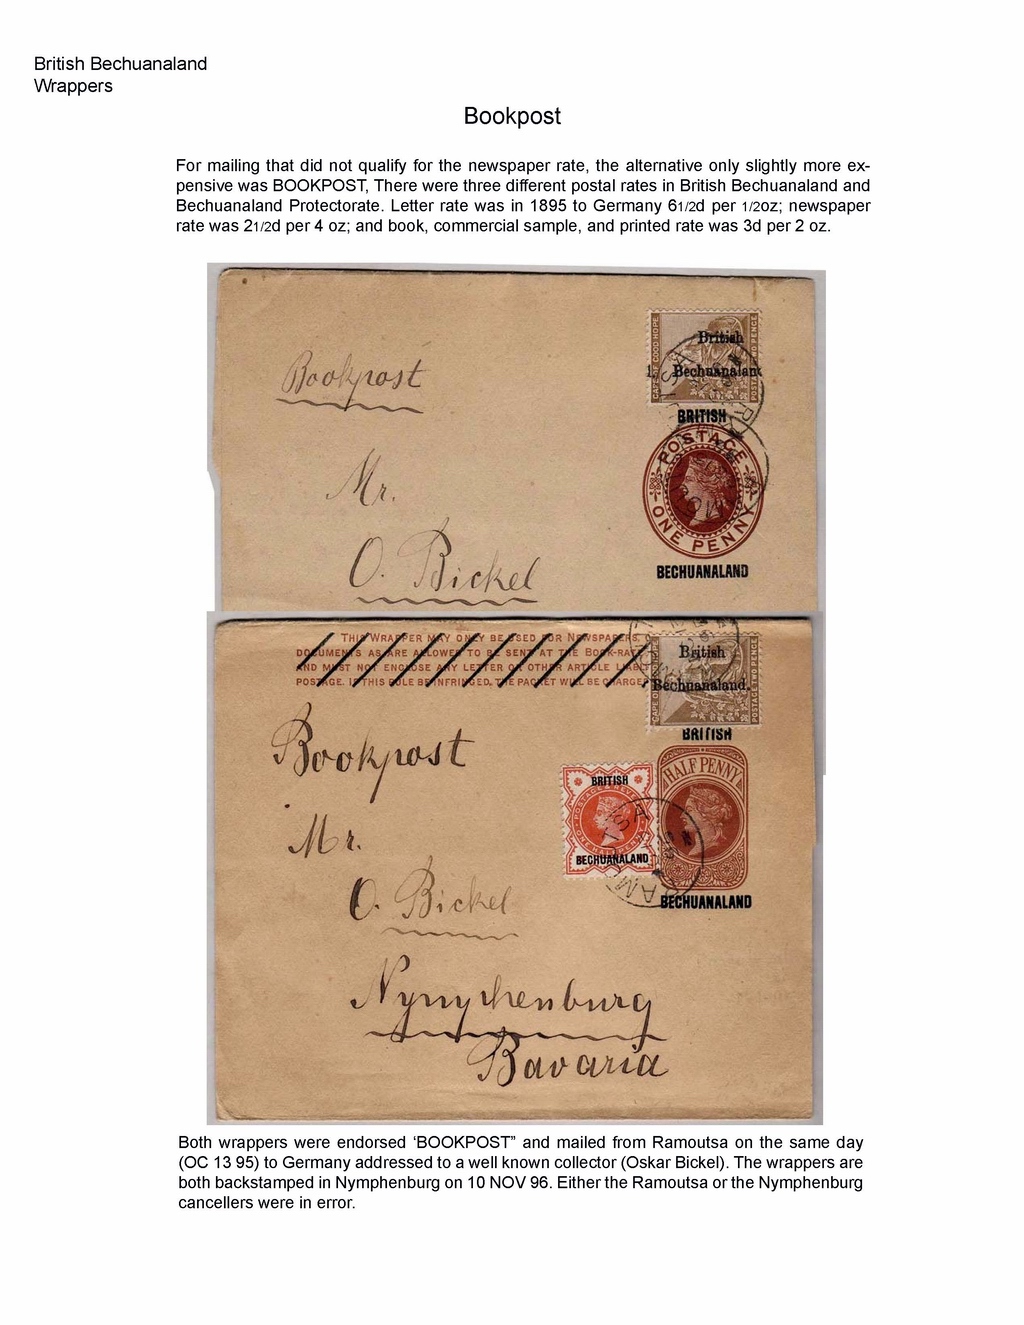 British Bechuanaland
Wrappers
Bookpost
For mailing that did not qualify for the newspaper rate, the alternative only slightly more ex-
pensive was BOOKPOST, There were three different postal rates in British Bechuanaland and
Bechuanaland Protectorate. Letter rate was in 1895 to Germany 61/2d per 1/2oz; newspaper
rate was 21/2d per 4 oz; and book, commercial sample, and printed rate was 3d per 2 oz.
British
Bechuanaland
Bookpost
BRITISH
POSTAGE
ONE PENNY
BECHUANALAND
Mr.
O. Bickel
THIS WRAPPER MAY ONLY BE USED FOR NEWSPAPERS, O
DOCUMENTS AS ARE ALLOWED TO BE SENT AT THE BOOK-RATE
AND MUST NOT ENCLOSE ANY LETTER OR OTHER ARTICLE LIABLE
POSTAGE. IF THIS RULE BE INFRINGED, THE PACKET WILL BE CHARGE
British
Bechuanaland.
BRITISH
HALFPENNY
BECHUANALAND
BRITISH
BECHUANALAND
Bookpost
Mr.
O. Bickel
Nymphenburg
Bavaria
Both wrappers were endorsed ‘BOOKPOST” and mailed from Ramoutsa on the same day
(OC 13 95) to Germany addressed to a well known collector (Oskar Bickel). The wrappers are
both backstamped in Nymphenburg on 10 NOV 96. Either the Ramoutsa or the Nymphenburg
cancellers were in error.